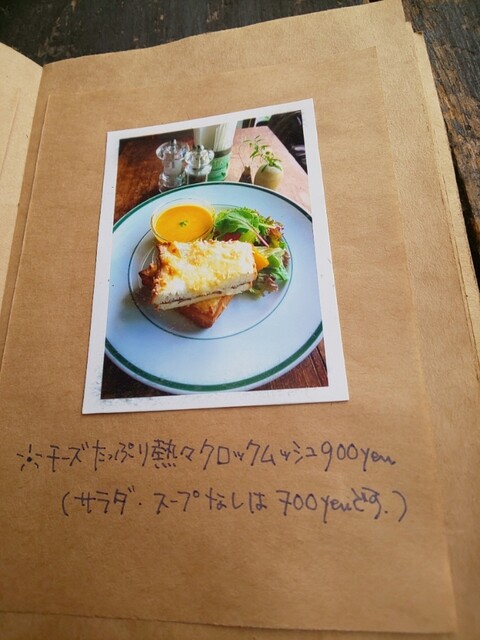 ※チーズたっぷり熱々クロックムッシュ900yen
(サラダ・スープなしは 700yenです。)